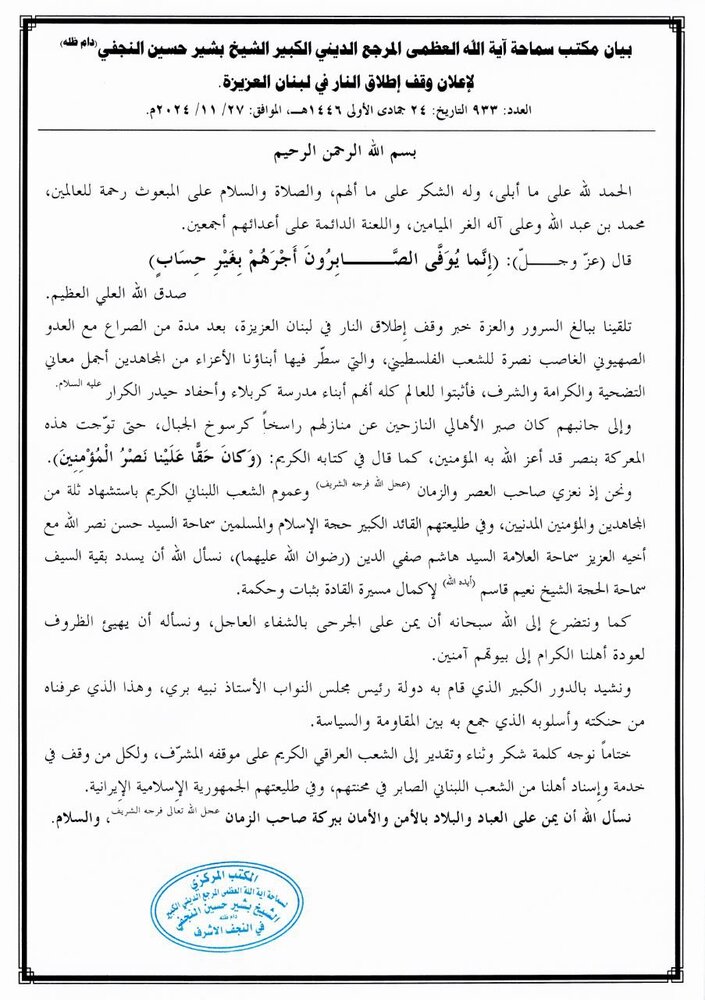 بيان مكتب سماحة آية الله العظمى المرجع الديني الكبير الشيخ بشير حسين النجفي (دام ظله)
لإعلان وقف إطلاق النار في لبنان العزيزة.
العدد: ٩٣٣ التاريخ: ٢٤ جمادى الأولى ١٤٤٦هـ، الموافق: ٢٧/ ١١/ ٢٠٢٤م.
بسم الله الرحمن الرحيم
الحمد لله على ما أبلى، وله الشكر على ما ألهم، والصلاة والسلام على المبعوث رحمة للعالمين،
محمد بن عبد الله وعلى آله الغر الميامين، واللعنة الدائمة على أعدائهم أجمعين.
قال (عزّ وجـــــلّ): (إِنَّما يُوَفَّى الصَّـــــابِرُونَ أَجْرَهُمْ بِغَيْرِ حِسَابٍ)
صدق الله العلي العظيم.
تلقينا ببالغ السرور والعزة خبر وقف إطلاق النار في لبنان العزيزة، بعد مدة من الصراع مع العدو
الصهيوني الغاصب نصرة للشعب الفلسطيني، والتي سطّر فيها أبناؤنا الأعزاء من المجاهدين أجمل معاني
التضحية والكرامة والشرف، فأثبتوا للعالم كله أنهم أبناء مدرسة كربلاء وأحفاد حيدر الكرار عليه السلام.
وإلى جانبهم كان صبر الأهالي النازحين عن منازلهم راسخاً كرسوخ الجبال، حتى توّجت هذه
المعركة بنصر قد أعز الله به المؤمنين، كما قال في كتابه الكريم: (وَكانَ حَقًّا عَلَيْنا نَصْرُ الْمُؤْمِنِينَ).
ونحن إذ نعزي صاحب العصر والزمان (عجل الله فرجه الشريف) وعموم الشعب اللبناني الكريم باستشهاد ثلة من
المجاهدين والمؤمنين المدنيين، وفي طليعتهم القائد الكبير حجة الإسلام والمسلمين سماحة السيد حسن نصر الله مع
أخيه العزيز سماحة العلامة السيد هاشم صفي الدين (رضوان الله عليهما)، نسأل الله أن يسدد بقية السيف
سماحة الحجة الشيخ نعيم قاسم (أيده الله) لإكمال مسيرة القادة بثبات وحكمة.
كما ونتضرع إلى الله سبحانه أن يمن على الجرحى بالشفاء العاجل، ونسأله أن يهيئ الظروف
لعودة أهلنا الكرام إلى بيوتهم آمنين.
ونشيد بالدور الكبير الذي قام به دولة رئيس مجلس النواب الأستاذ نبيه بري، وهذا الذي عرفناه
من حنكته وأسلوبه الذي جمع به بين المقاومة والسياسة.
ختاماً نوجه كلمة شكر وثناء وتقدير إلى الشعب العراقي الكريم على موقفه المشرّف، ولكل من وقف في
خدمة وإسناد أهلنا من الشعب اللبناني الصابر في محنتهم، وفي طليعتهم الجمهورية الإسلامية الإيرانية.
نسأل الله أن يمن على العباد والبلاد بالأمن والأمان ببركة صاحب الزمان عجل الله تعالى فرجه الشريف، والسلام.
المكتب المركزي
لسماحة آية الله العظمى المرجع الديني الكبير
الشيخ بشير حسين النجفي
دام ظله
في النجف الاشرف